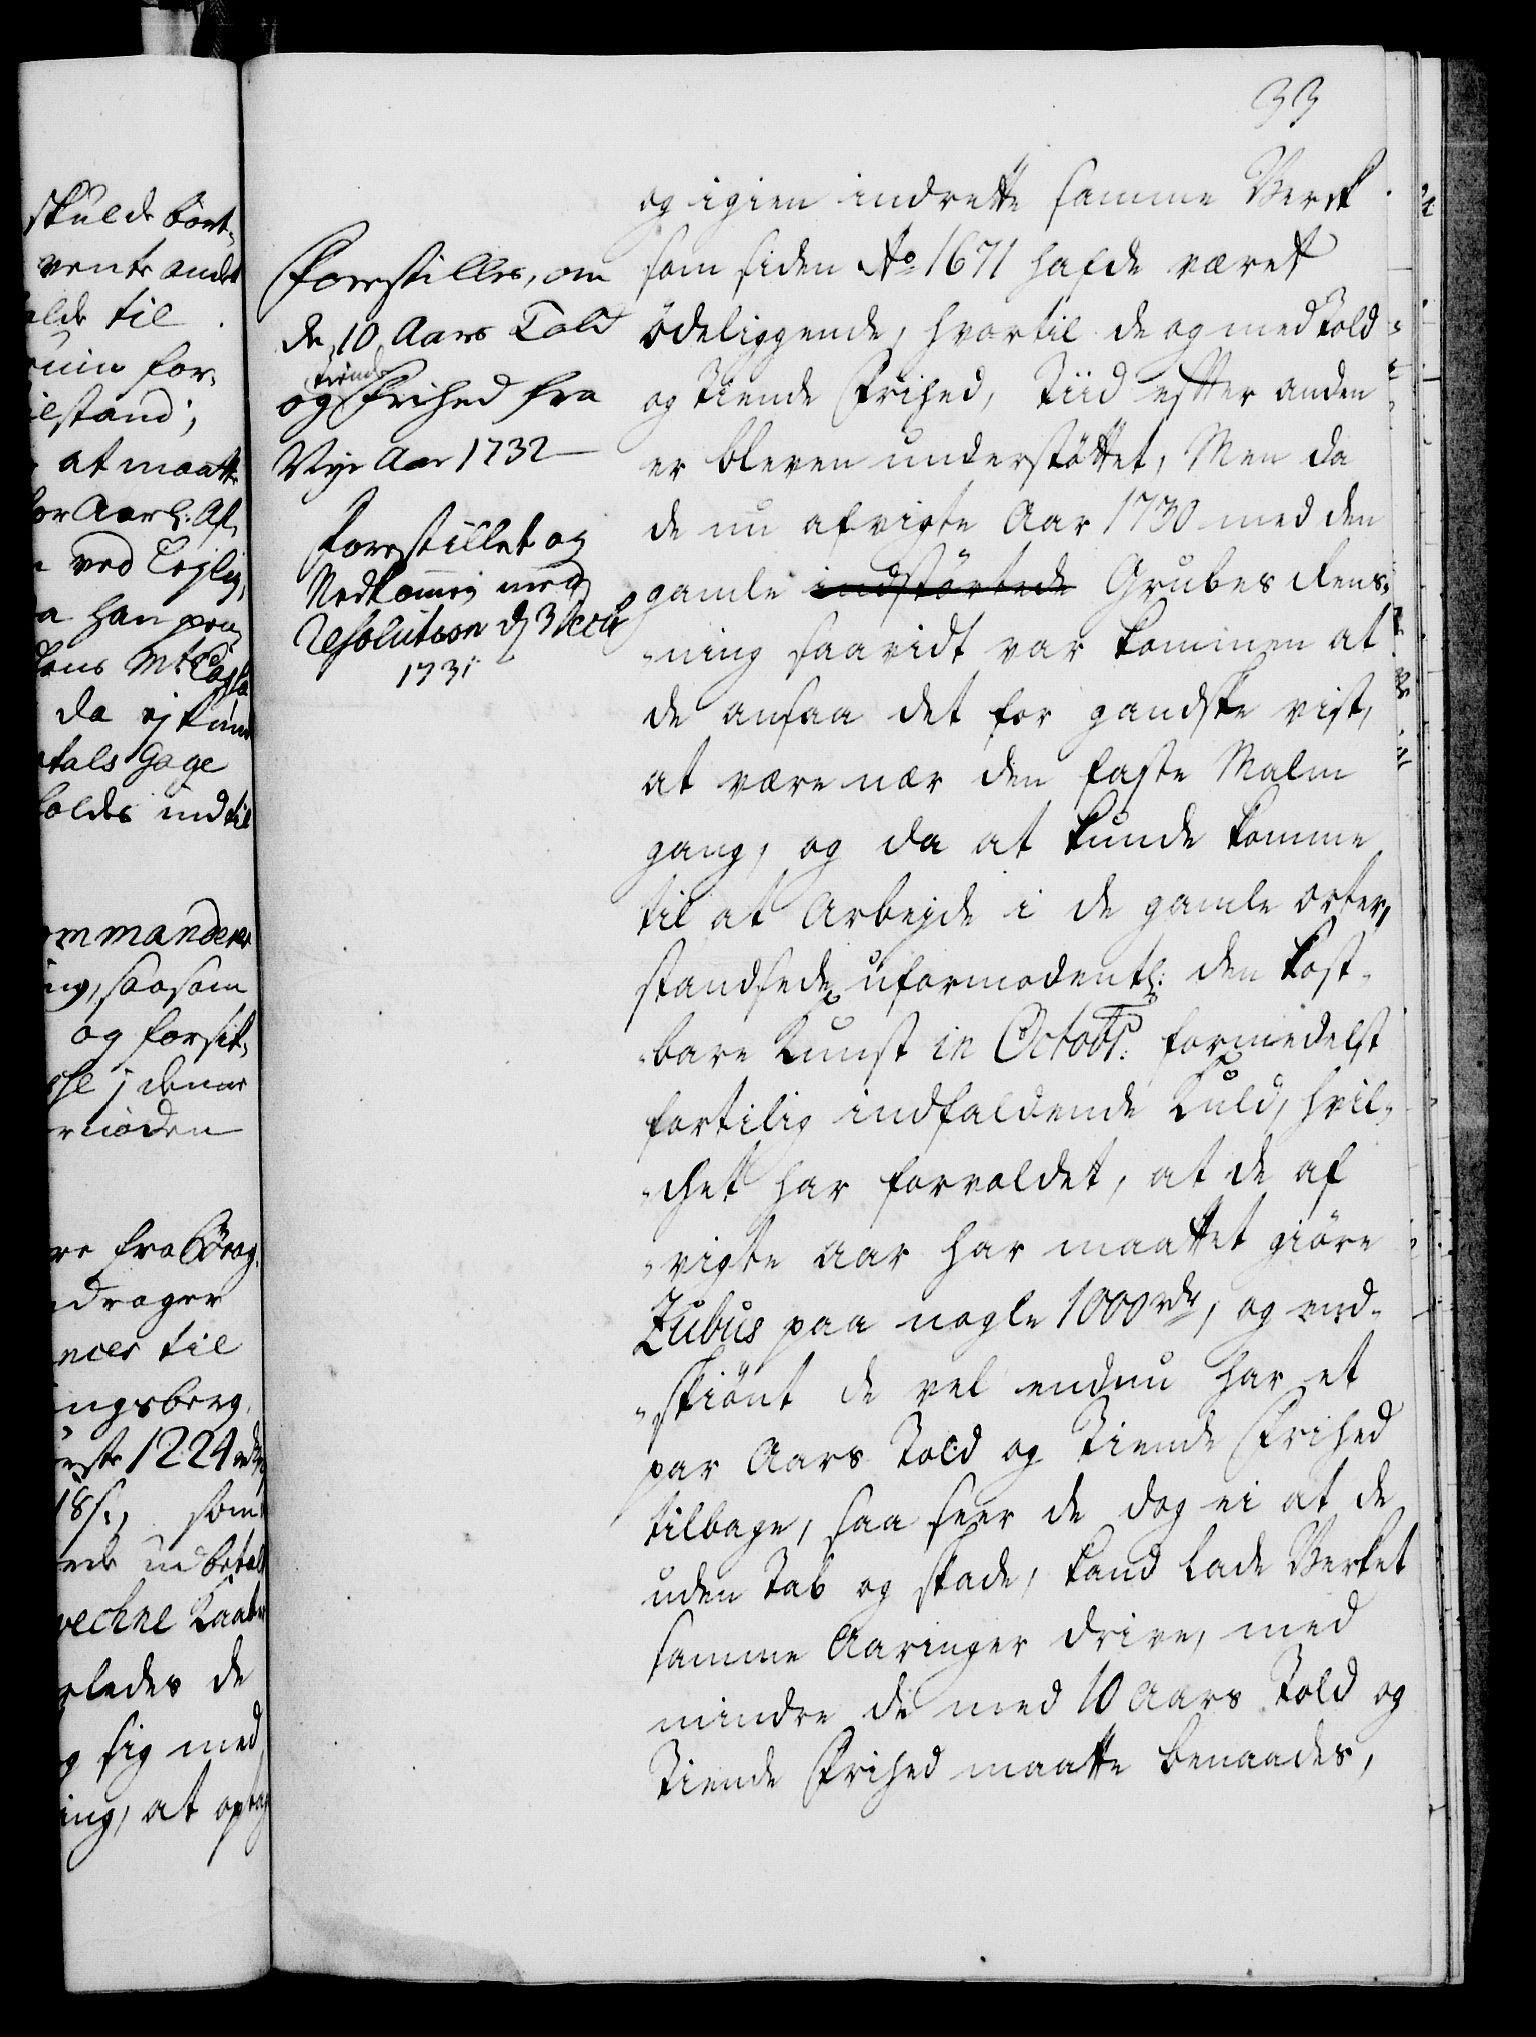 skulde bort-
vente andet
alde til
ruin for-
ilstand;
at maatte
for Aarl: Af-
ved Teglg,
a han
da ej kund
tals Gage
holdes indtil
ommanderer
ing, saasom
og forsik,
j denne
rioden
re fra
ndrager
ncer til
ingsberg,
1224 rdr
18 s:, som
udbetal
ledes de
g sig med
ing, at optag
33
Forestilles, om
de 10 Aars Told
tiende
og Frihed fra
Nye Aar 1732
Forestillet og
Nedkommen med
Resolution d 3
1731
og igien indrette samme Verck
som siden Ao 1671 hafde været
ödeliggende, hvortil de og med Told
og Tiende Frihed, Tiid efter anden
er bleven understöttet, Men da
de nu afvigte Aar 1730 med den
gamle indstörtede Grubes Rens-
ning saavidt var kommen at
de ansaa det for gandske vist,
at være nær den faste Malm
gang, og da at kunde komme
til at Arbejde i de gamle orter,
standsede uformodentl: den kost-
bare Kunst in Octobr: formedelst
fortilig indfaldende Kuld, hvil-
chet har forvoldet, at de af
vigte aar har maattet giöre
Zubus paa nogle 1000 rdr, og end-
skiönt de vel endnu har et
par Aars Told og Tiende Frihed
tilbage, saa seer de dog ei at de
uden Tab og skade, kand lade Verket
samme Aaringer drive, med
mindre de med 10 Aars Told og
Tiende Frihed maatte benaades,